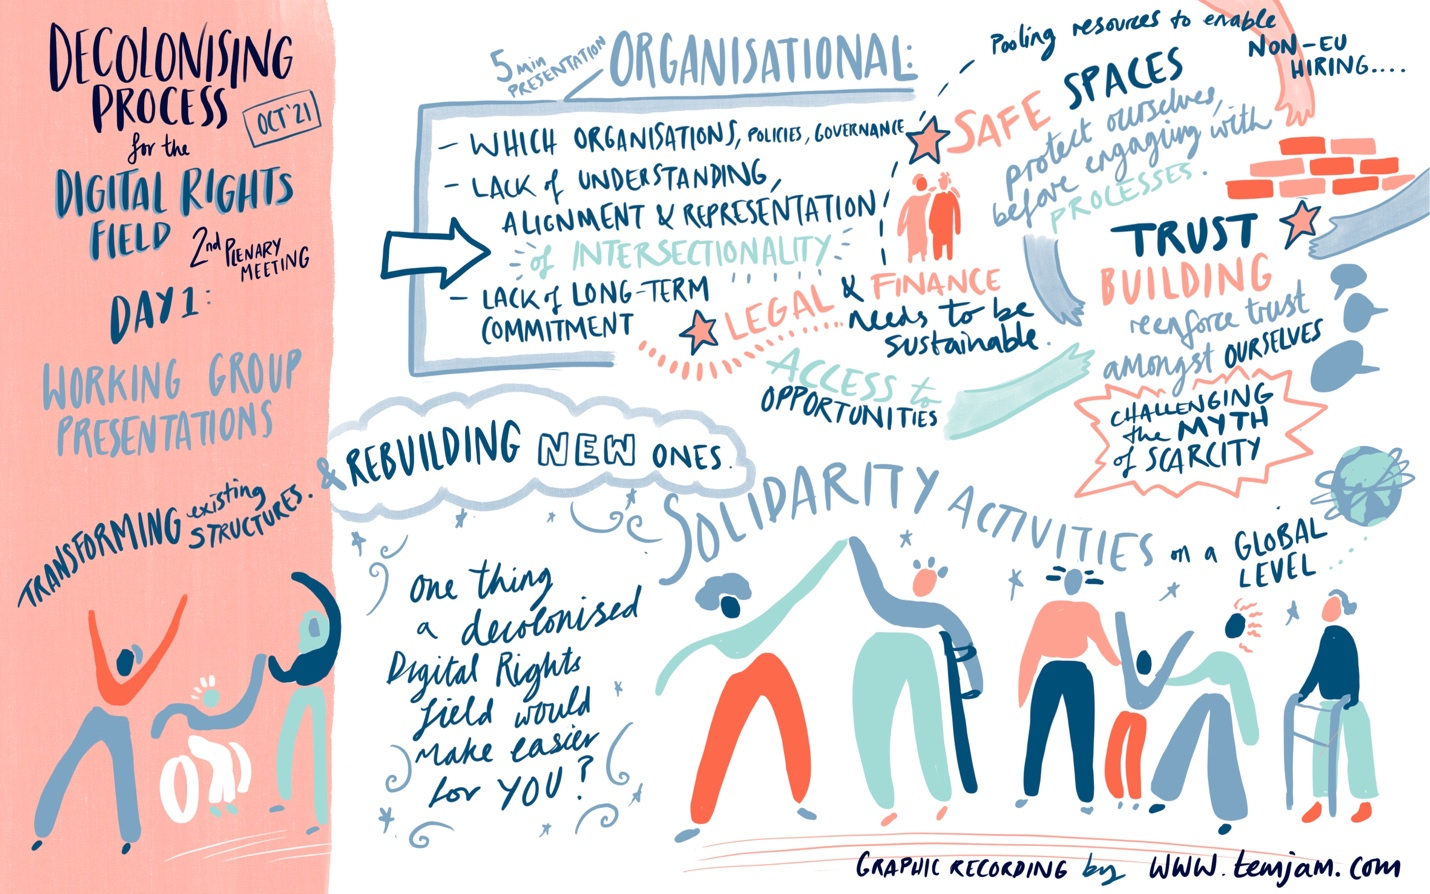 DECOLONISING
PROCESS
OCT '21
for the
DIGITAL RIGHTS
FIELD
2nd PLENARY
MEETING
DAY 1:
WORKING GROUP
PRESENTATIONS
TRANSFORMING existing
STRUCTURES.
& REBUILDING NEW ONES.
5 min
PRESENTATION
ORGANISATIONAL:
- WHICH ORGANISATIONS, POLICIES, GOVERNANCE
- LACK of UNDERSTANDING,
ALIGNMENT & REPRESENTATION
of INTERSECTIONALITY
- LACK of LONG-TERM
COMMITMENT
Pooling resources to enable
NON-EU
HIRING....
SAFE SPACES
protect ourselves,
before engaging with
PROCESSES.
LEGAL & FINANCE
needs to be
sustainable.
ACCESS to
OPPORTUNITIES
TRUST
BUILDING
reenforce trust
amongst OURSELVES
CHALLENGING
the MYTH
of SCARCITY
SOLIDARITY ACTIVITIES on a GLOBAL
LEVEL
one thing
a decolonised
Digital Rights
field would
make easier
for YOU?
GRAPHIC RECORDING by WWW.temjam.com